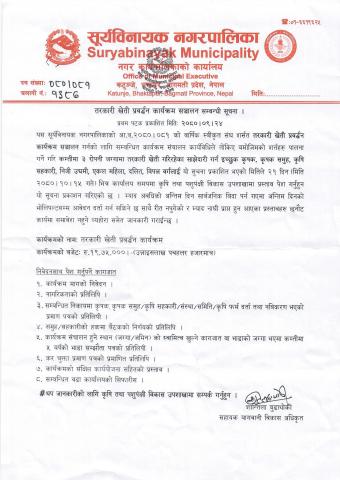 ☎:०१-६६१६६२५
सूर्यविनायक नगरपालिका
Suryabinayak Municipality
नगर कार्यपालिकाको कार्यालय
Office of Municipal Executive
कटुञ्जे, भक्तपुर, बागमती प्रदेश, नेपाल
Katunje, Bhaktapur, Bagmati Province, Nepal
पत्र संख्या: ०८०।०८१
चलानी नं.: ९३८६
मिति:
तरकारी खेती प्रवर्द्धन कार्यक्रम सञ्चालन सम्बन्धी सूचना ।
प्रथम पटक प्रकाशित मिति: २०८०।०९।२५
यस सूर्यविनायक नगरपालिकाको आ.व.२०८०।०८१ को वार्षिक स्वीकृत संघ शर्सत तरकारी खेती प्रवर्द्धन
कार्यक्रम सञ्चालन गर्नको लागि सम्बन्धित कार्यक्रम संचालन कार्यविधिले तोकिए बमोजिमको शर्तहरु पालना
गर्ने गरि कम्तीमा ३ रोपनी जग्गामा तरकारी खेती गरिरहेका साझेदारी गर्न इच्छुक कृषक, कृषक समुह, कृषि
सहकारी, निजी उद्यमी, एकल महिला, दलित, विपन्न वर्गलाई यो सूचना प्रकाशित भएको मितिले २१ दिन (मिति
२०८०।१०।१५ गते) भित्र कार्यालय समयमा कृषि तथा पशुपंक्षी विकास उपशाखामा प्रस्ताव पेश गर्नुहुन
यो सूचना प्रकाशन गरिएको छ । म्याद अवधिको अन्तिम दिन सार्वजनिक विदा पर्न गएमा अन्तिम दिनको
भोलिपल्टसम्म आवेदन दर्ता गर्न सकिने छ साथै रीत नपुगेको र म्याद नाघी प्राप्त हुन आएका प्रस्तावहरु छनौट
कार्यमा समावेश नहुने व्यहोरा समेत जानकारी गराईन्छ ।
कार्यक्रमको नाम: तरकारी खेती प्रवर्द्धन कार्यक्रम
कार्यक्रमको बजेट: रु.१९,७५,०००।- (उन्नाइसलाख पचहत्तर हजारमात्र)
निवेदनसाथ पेश गर्नुपर्ने कागजात
१. कार्यक्रम मागको निवेदन ।
२. नागरिकताको प्रतिलिपि ।
३. सम्बन्धित निकायमा कृषक,कृषक समुह/कृषि सहकारी/संस्था/समिति/कृषि फार्म दर्ता तथा नविकरण भएको
प्रमाण पत्रको प्रतिलिपी ।
४. समुह/सहकारीको हकमा बैठकको निर्णयको प्रतिलिपि ।
५. कार्यक्रम संचालन हुने स्थान (जग्गा/जमिन) को स्वामित्व खुल्ने कागजात वा भाडाको जग्गा भएमा कम्तीमा
५ वर्षको भाडा सम्झौता पत्रको प्रतिलिपी ।
६. कर चुक्ता प्रमाण पत्रको प्रमाणित प्रतिलिपि ।
७. कार्यक्रमको संक्षिप्त कार्ययोजना सहितको प्रस्ताव ।
८. सम्बन्धित वडा कार्यालयको सिफारीस ।
#थप जानकारीको लागि कृषि तथा पशुपंक्षी विकास उपशाखामा सम्पर्क गर्नुहुन ।
शान्तिला दुवाधोकी
सहायक बागवानी विकास अधिकृत